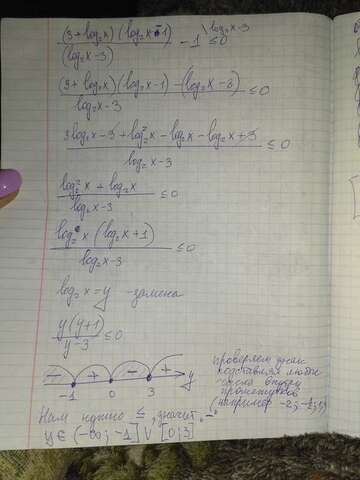 (3 + log₂x)(log₂x - 1) / (log₂x - 3) - 1 \log₂x-3 ≤ 0
(3 + log₂x)(log₂x - 1) - (log₂x - 3) / log₂x - 3 ≤ 0
3log₂x - 3 + log₂²x - log₂x - log₂x + 3 / log₂x - 3 ≤ 0
log₂²x + log₂x / log₂x - 3 ≤ 0
log₂x (log₂x + 1) / log₂x - 3 ≤ 0
log₂x = y - замена
y(y+1) / y-3 ≤ 0
- + - + y
-1 0 3
проверяем знаки
подставляя любые
числа внутри
промежутков
Нам нужно ≤, значит „-“
y ∈ (-∞; -1] ∪ [0; 3)